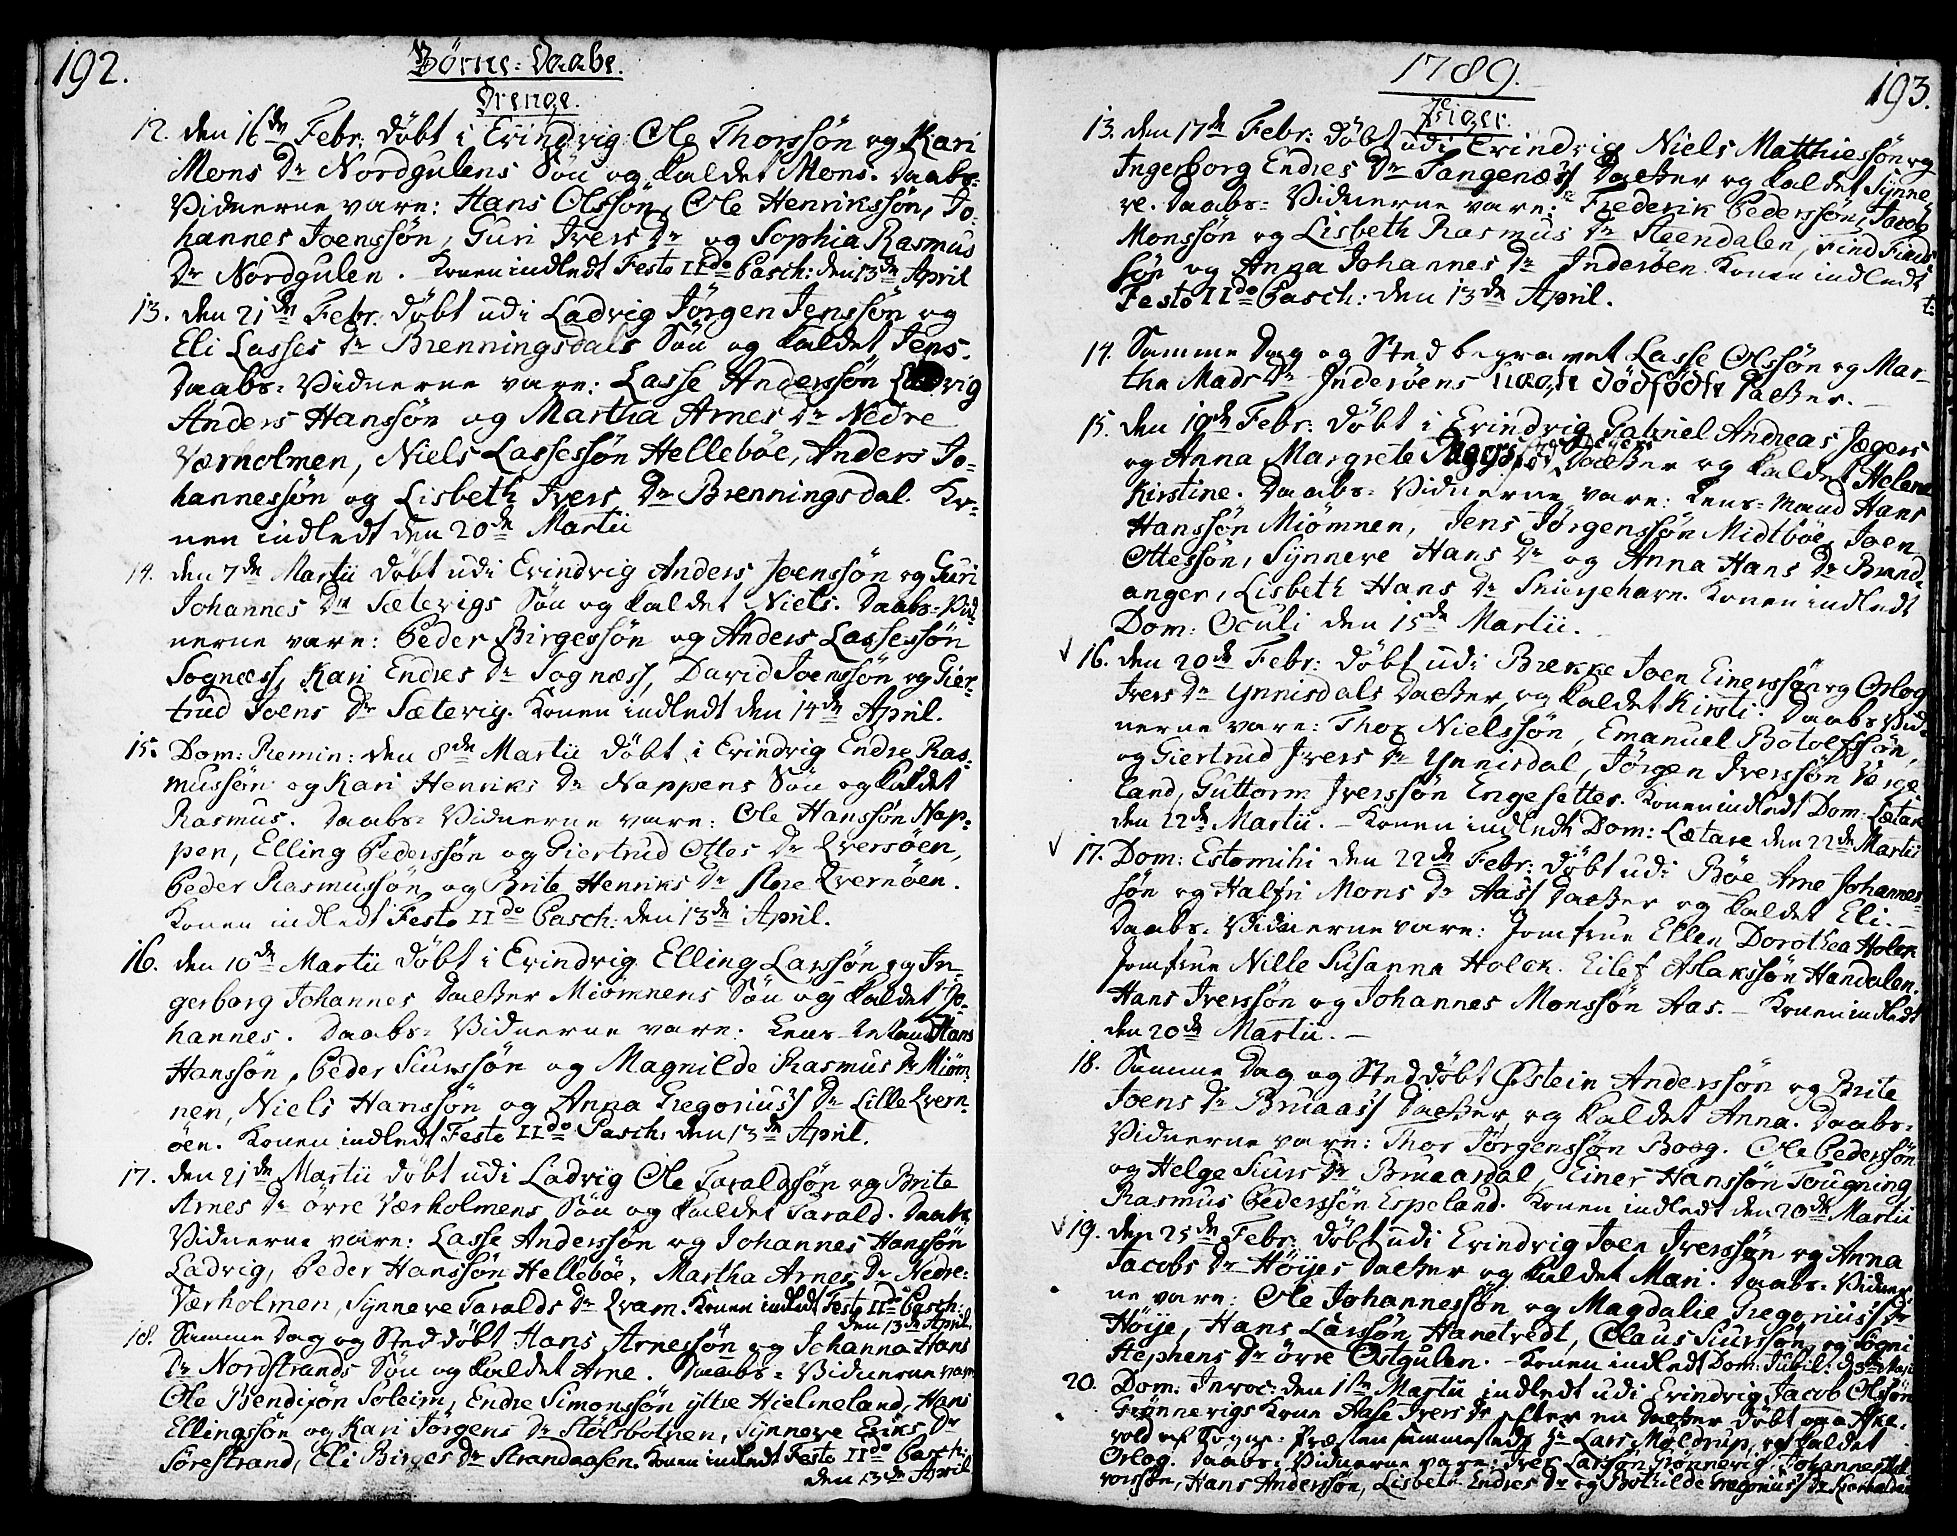 192.
Börne-Daabe.
Drenge.
12. den 16de Febr: döbt i Evindvig Ole Thorssøn og Kari
Mons Dr Nordgulens Søn og kaldet Mons. Daabs-
Vidnerne vare: Hans Olssøn, Ole Henrikssøn, Jo-
hannes Joenssøn, Guri Ivers Dr og Sophia Rasmus
Dr Nordgulen. Konen indledt Festo IIdo Pasch: den 13de April
13. den 21de Febr: döbt udi Ladvig Jørgen Jenssøn og
Eli Lasses Dr Brenningsdals Søn og kaldet Jens.
Daabs-Vidnerne vare: Lasse Anderssøn Ladvig
Anders Hanssøn og Martha Arnes Dr Nedre
Værholmen, Niels Lassessøn Hellebøe, Anders Jo-
hannessøn og Lisbeth Ivers Dr Brenningsdal. Ko-
nen indledt den 20de Martii
14. den 7de Martii döbt udi Evindvig Anders Joenssøn og Guri
Johannes Dr Sætevigs Søn og kaldet Niels. Daabs-Vid-
nerne vare: Peder Birgessøn og Anders Lassessøn
Sognæss, Kari Endres Dr Sognæss, David Joenssøn og Gier-
trud Joens Dr Sætevig. Konen indledt den 14de April.
15. Dom: Remin: den 8de Martii döbt i Evindvig Endre Ras-
mussøn og Kari Henriks Dr Nappens Søn og kaldet
Rasmus. Daabs-Vidnerne vare: Ole Hanssøn Nap-
pen, Elling Pederssøn og Giertrud Ottes Dr Qversøen,
Peder Rasmussøn og Brite Henriks Dr store Qvernøen.
Konen indledt Festo IIdo Pasch: den 13de April.
16. den 10de Martii döbt i Evindvig Elling Larssøn og In-
gerborg Johannes Datter Miømnens Søn og kaldet Jo-
hannes. Daabs-Vidnerne vare: Lens-Mand Hans
Hanssøn, Peder Siurssøn og Magnilde Rasmus Dr Miøm-
nen, Niels Hanssøn og Anna Gregoriuss Dr Lille Qvern-
öen. Konen indledt Festo IIdo Pasch: den 13de April.
17. den 21de Martii döbt udi Ladvig Ole Taraldssøn og Brite
Arnes Dr øvre Værholmens Søn og kaldet Tarald. Daabs-
Vidnerne vare: Lasse Anderssøn og Johannes Hanssøn
Ladvig, Peder Hanssøn Hellebøe, Martha Arnes Dr Nedre-
Værholmen, Synneve Taralds Dr Qvam. Konen indledt Festo IIdo Pasch:
den 13de April.
18. Samme Dag og Sted döbt Hans Arnessøn og Johanna Hans
Dr Nordstrands Søn og kaldet Arne. Daabs-Vidnerne vare
Ole Bendixøn Soleim, Endre Simonssøn yttre Hielmeland, Hans
Ellingssøn og Kari Jørgens Dr Stølsbotnen, Synneve Eriks Dr
Sørestrand, Eli Birges Dr Strandaasen. Konen indledt Festo IIdo Pasch:
den 13de April
1789.
193.
Piger.
13. den 17de Febr: döbt udi Evindvig Niels Matthiessøn og
Ingerborg Endres Dr Tangenæss Datter og kaldet Synne-
ve. Daabs-Vidnerne vare: Frederik Pederssøn, Jacob
Monssøn og Lisbeth Rasmus Dr Steendalen, Find Finds-
søn og Anna Johannes Dr Inderøen. Konen indledt
Festo IIdo Pasch: den 13de April.
14. Samme Dag og Sted begravet Lasse Olssøn og Mar-
tha Mads Dr Inderøens uægte dödfödte Datter.
15. den 19de Febr: döbt i Evindvig Gabriel Andreas Jægers
og Anna Margrete Datter og kaldet Helene
Kirstine. Daabs-Vidnerne vare: Lens-Mand Hans
Hanssøn Miømnen, Jens Jørgenssøn Midtbøe, Joen
Ottessøn, Synneve Hans Dr og Anna Hans Dr Brand-
anger, Lisbeth Hans Dr Skiergehavn. Konen indledt
Dom: Oculi den 15de Martii.
16. den 20de Febr: döbt udi Brekke Joen Einerssøn og Orlog
Ivers Dr Ynnisdals Datter og kaldet Kirsti. Daabs-Vid-
nerne vare: Thor Nielssøn, Emanuel Botolfssøn,
og Giertrud Ivers Dr Ynnisdal, Jørgen Iverssøn Værge-
land, Guttorm Iverssøn Engesetter. Konen indledt Dom: Lætare
den 22de Martii. - Konen indledt Dom: Lætare den 22de Martii
17. Dom: Estomihi den 22de Febr: döbt udi Bøe Arne Johannes-
søn og Halfri Mons Dr Aass Datter og kaldet Eli.
Daabs-Vidnerne vare: Jomfrue Ellen Dorothea Holck
Jomfrue Nille Susanna Holck. Eilef Aslakssøn Handalen,
Hans Iverssøn og Johannes Monssøn Aas. - Konen indledt
den 20de Martii. -
18. Samme Dag og Sted döbt Østein Anderssøn og Brite
Joens Dr Bruaass Datter og kaldet Anna. Daabs-
Vidnerne vare: Thor Jørgenssøn Boog. Ole Pederssøn
og Helge Siurs Dr Bruaardal, Einer Hanssøn Tougning,
Rasmus Pederssøn Espeland. Konen indledt den 20de Martii
19. den 25de Febr: döbt udi Evindvig Joen Iverssøn og Anna
Jacobs Dr Höijes Datter og kaldet Mari. Daabs-Vidner-
ne vare: Ole Johannessøn og Magdalie Gregoriuss Dr
Höije, Hans Larssøn Hanetvedt, Claus Siurssøn, og Sogni
Stephens Dr øvre Ostgulen. - Konen indledt Dom: Jubil: d 3de Maji
20. Dom: Invoc: den 1ste Martii indledt udi Evindvig Jacob Olssøn
Grønnevigs Kone Aase Ivers Dr efter en Datter döbt paa Aske-
vold af Sogne-Præsten sammesteds Hr Lars Møldrup, og kaldet
Orlog. Daabs-Vidnerne vare: Iver Larssøn Grønnevig, Johannes
Hans Anderssøn, Lisbeth Endres Dr og Bothilde Gregoriuss Dr